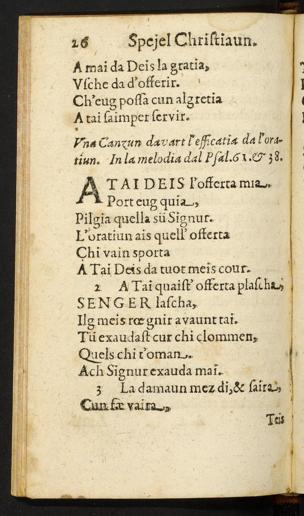 26 Spejel Christiaun.
A mai da Deis la gratia,
Vsche da d'offerir.
Ch'eug possa cun algretia
A tai saimper servir.
Vna Canzun davart l'efficatia da l'ora-
tiun. In la melodia dal Psal. 61. & 38.
A TAI DEIS l'offerta mia,
Port eug quia,
Pilgia quella sü Signur.
L'oratiun ais quell' offerta
Chi vain sporta
A Tai Deis da tuot meis cour.
2 A Tai quaist' offerta plascha,
SENGER lascha,
Ilg meis rœ gnir avaunt tai.
Tü exaudast eur chi clommen,
Quels chi t'oman.
Ach Signur exauda mai.
3 La damaun mez di, & saira,
Cun fæ vaira,
Teis